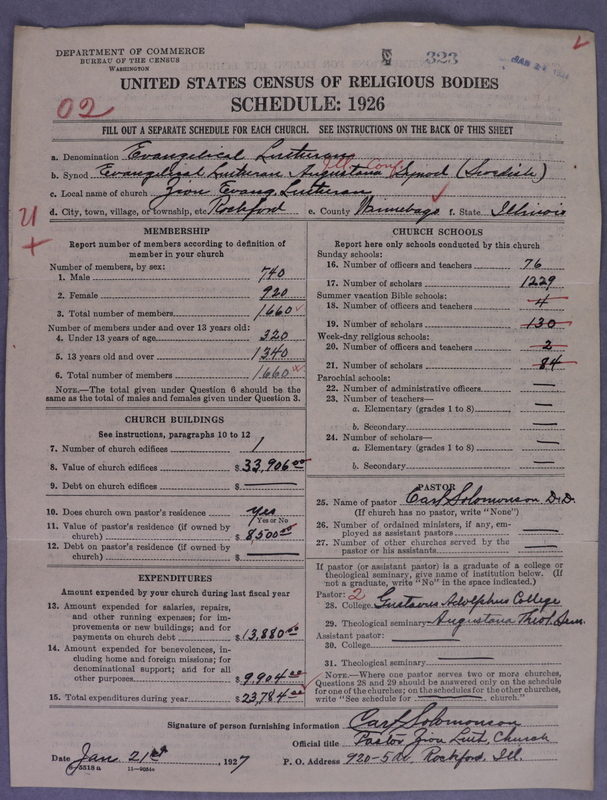 DEPARTMENT OF COMMERCE
BUREAU OF THE CENSUS
WASHINGTON
323
JAN 2
UNITED STATES CENSUS OF RELIGIOUS BODIES
SCHEDULE: 1926
02
FILL OUT A SEPARATE SCHEDULE FOR EACH CHURCH. SEE INSTRUCTIONS ON THE BACK OF THIS SHEET
a. Denomination Evangelical Lutheran
Ills. Conf.
b. Synod Evangelical Lutheran Augustana Synod (Swedish)
c. Local name of church Zion Evang. Lutheran
d. City, town, village, or township, etc. Rockford e. County Winnebago f. State Illinois
U
+
MEMBERSHIP
Report number of members according to definition of member in your church
Number of members, by sex:
1. Male 740
2. Female 920
3. Total number of members 1660
Number of members under and over 13 years old:
4. Under 13 years of age 320
5. 13 years old and over 1340
6. Total number of members 1660
NOTE.—The total given under Question 6 should be the
same as the total of males and females given under Question 3.
CHURCH BUILDINGS
See instructions, paragraphs 10 to 12
7. Number of church edifices 1
8. Value of church edifices $33,906.00
9. Debt on church edifices $ —
10. Does church own pastor's residence yes
Yes or No
11. Value of pastor's residence (if owned by
church) $8,500.00
12. Debt on pastor's residence (if owned by
church) $ —
EXPENDITURES
Amount expended by your church during last fiscal year
13. Amount expended for salaries, repairs,
and other running expenses; for im-
provements or new buildings; and for
payments on church debt $13,880.00
14. Amount expended for benevolences, in-
cluding home and foreign missions; for
denominational support; and for all
other purposes $9,904.00
15. Total expenditures during year $23,784.00
CHURCH SCHOOLS
Report here only schools conducted by this church
Sunday schools:
16. Number of officers and teachers 76
17. Number of scholars 1229
Summer vacation Bible schools:
18. Number of officers and teachers 4
19. Number of scholars 130
Week-day religious schools:
20. Number of officers and teachers 2
21. Number of scholars 84
Parochial schools:
22. Number of administrative officers —
23. Number of teachers—
a. Elementary (grades 1 to 8) —
b. Secondary —
24. Number of scholars—
a. Elementary (grades 1 to 8) —
b. Secondary —
PASTOR
25. Name of pastor Carl Solomonson D.D.
(If church has no pastor, write "None")
26. Number of ordained ministers, if any, em-
ployed as assistant pastors —
27. Number of other churches served by the
pastor or his assistants —
If pastor (or assistant pastor) is a graduate of a college or
theological seminary, give name of institution below. (If
not a graduate, write "No" in the space indicated.)
Pastor: 2
28. College Gustavus Adolphus College
29. Theological seminary Augustana Theol. Sem.
Assistant pastor: —
30. College —
31. Theological seminary —
NOTE.—Where one pastor serves two or more churches,
Questions 28 and 29 should be answered only on the schedule
for one of the churches; on the schedules for the other churches,
write "See schedule for — church."
Signature of person furnishing information Carl Solomonson
Official title Pastor Zion Luth. Church
Date Jan. 21st, 1927 P. O. Address 920-5 Av. Rockford, Ill.
6-5518 a 11—9084